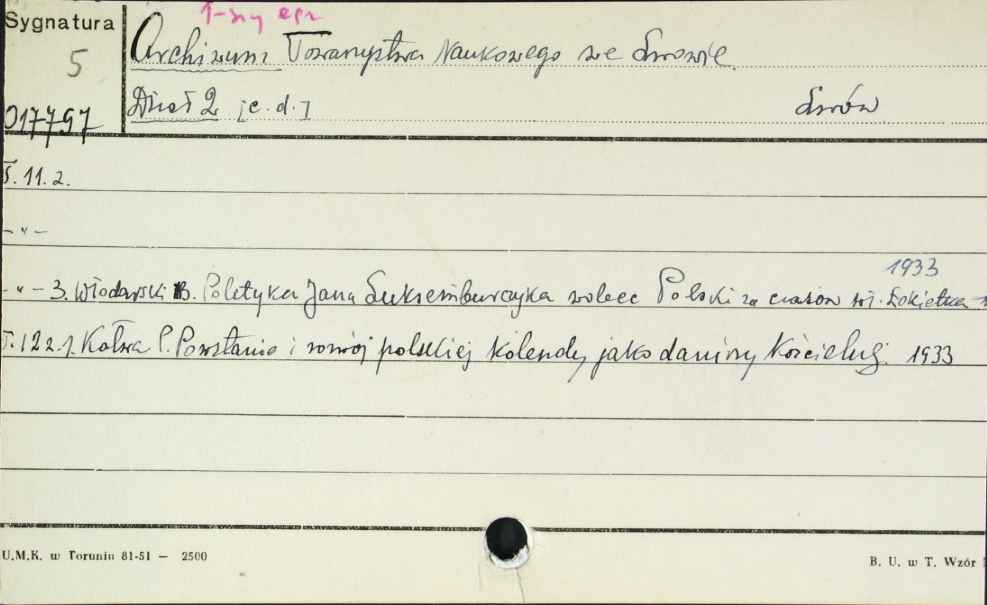 1-szy egz
Sygnatura
5
017797
Archiwum Towarzystwa Naukowego we Lwowie.
Dział 2 [c.d.] Lwów
T. 11. z.
- " -
- " - 3. Włodarski B. Polityka Jana Luksemburczyka wobec Polski za czasów Wł. Łokietka 1933
T. 12 z. 1. Kałwa P. Powstanie i rozwój polskiej kolendy jako daniny Kościelnej. 1933
U.M.K. w Toruniu 81-51 — 2500
B. U. w T. Wzór